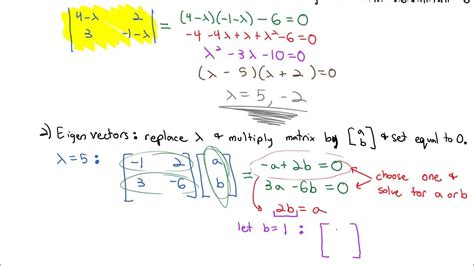 |4-λ 2| = (4-λ)(-1-λ) - 6 = 0
|3 -1-λ| -4 -4λ + λ + λ² - 6 = 0
λ² - 3λ - 10 = 0
(λ - 5)(λ + 2) = 0
λ = 5, -2
2) Eigenvectors: replace λ & multiply matrix by [a b] & set equal to 0.
λ=5: [-1 2] [a] = -a + 2b = 0
[3 -6] [b] 3a - 6b = 0
choose one & solve for a or b
2b = a
let b = 1 : [ ]